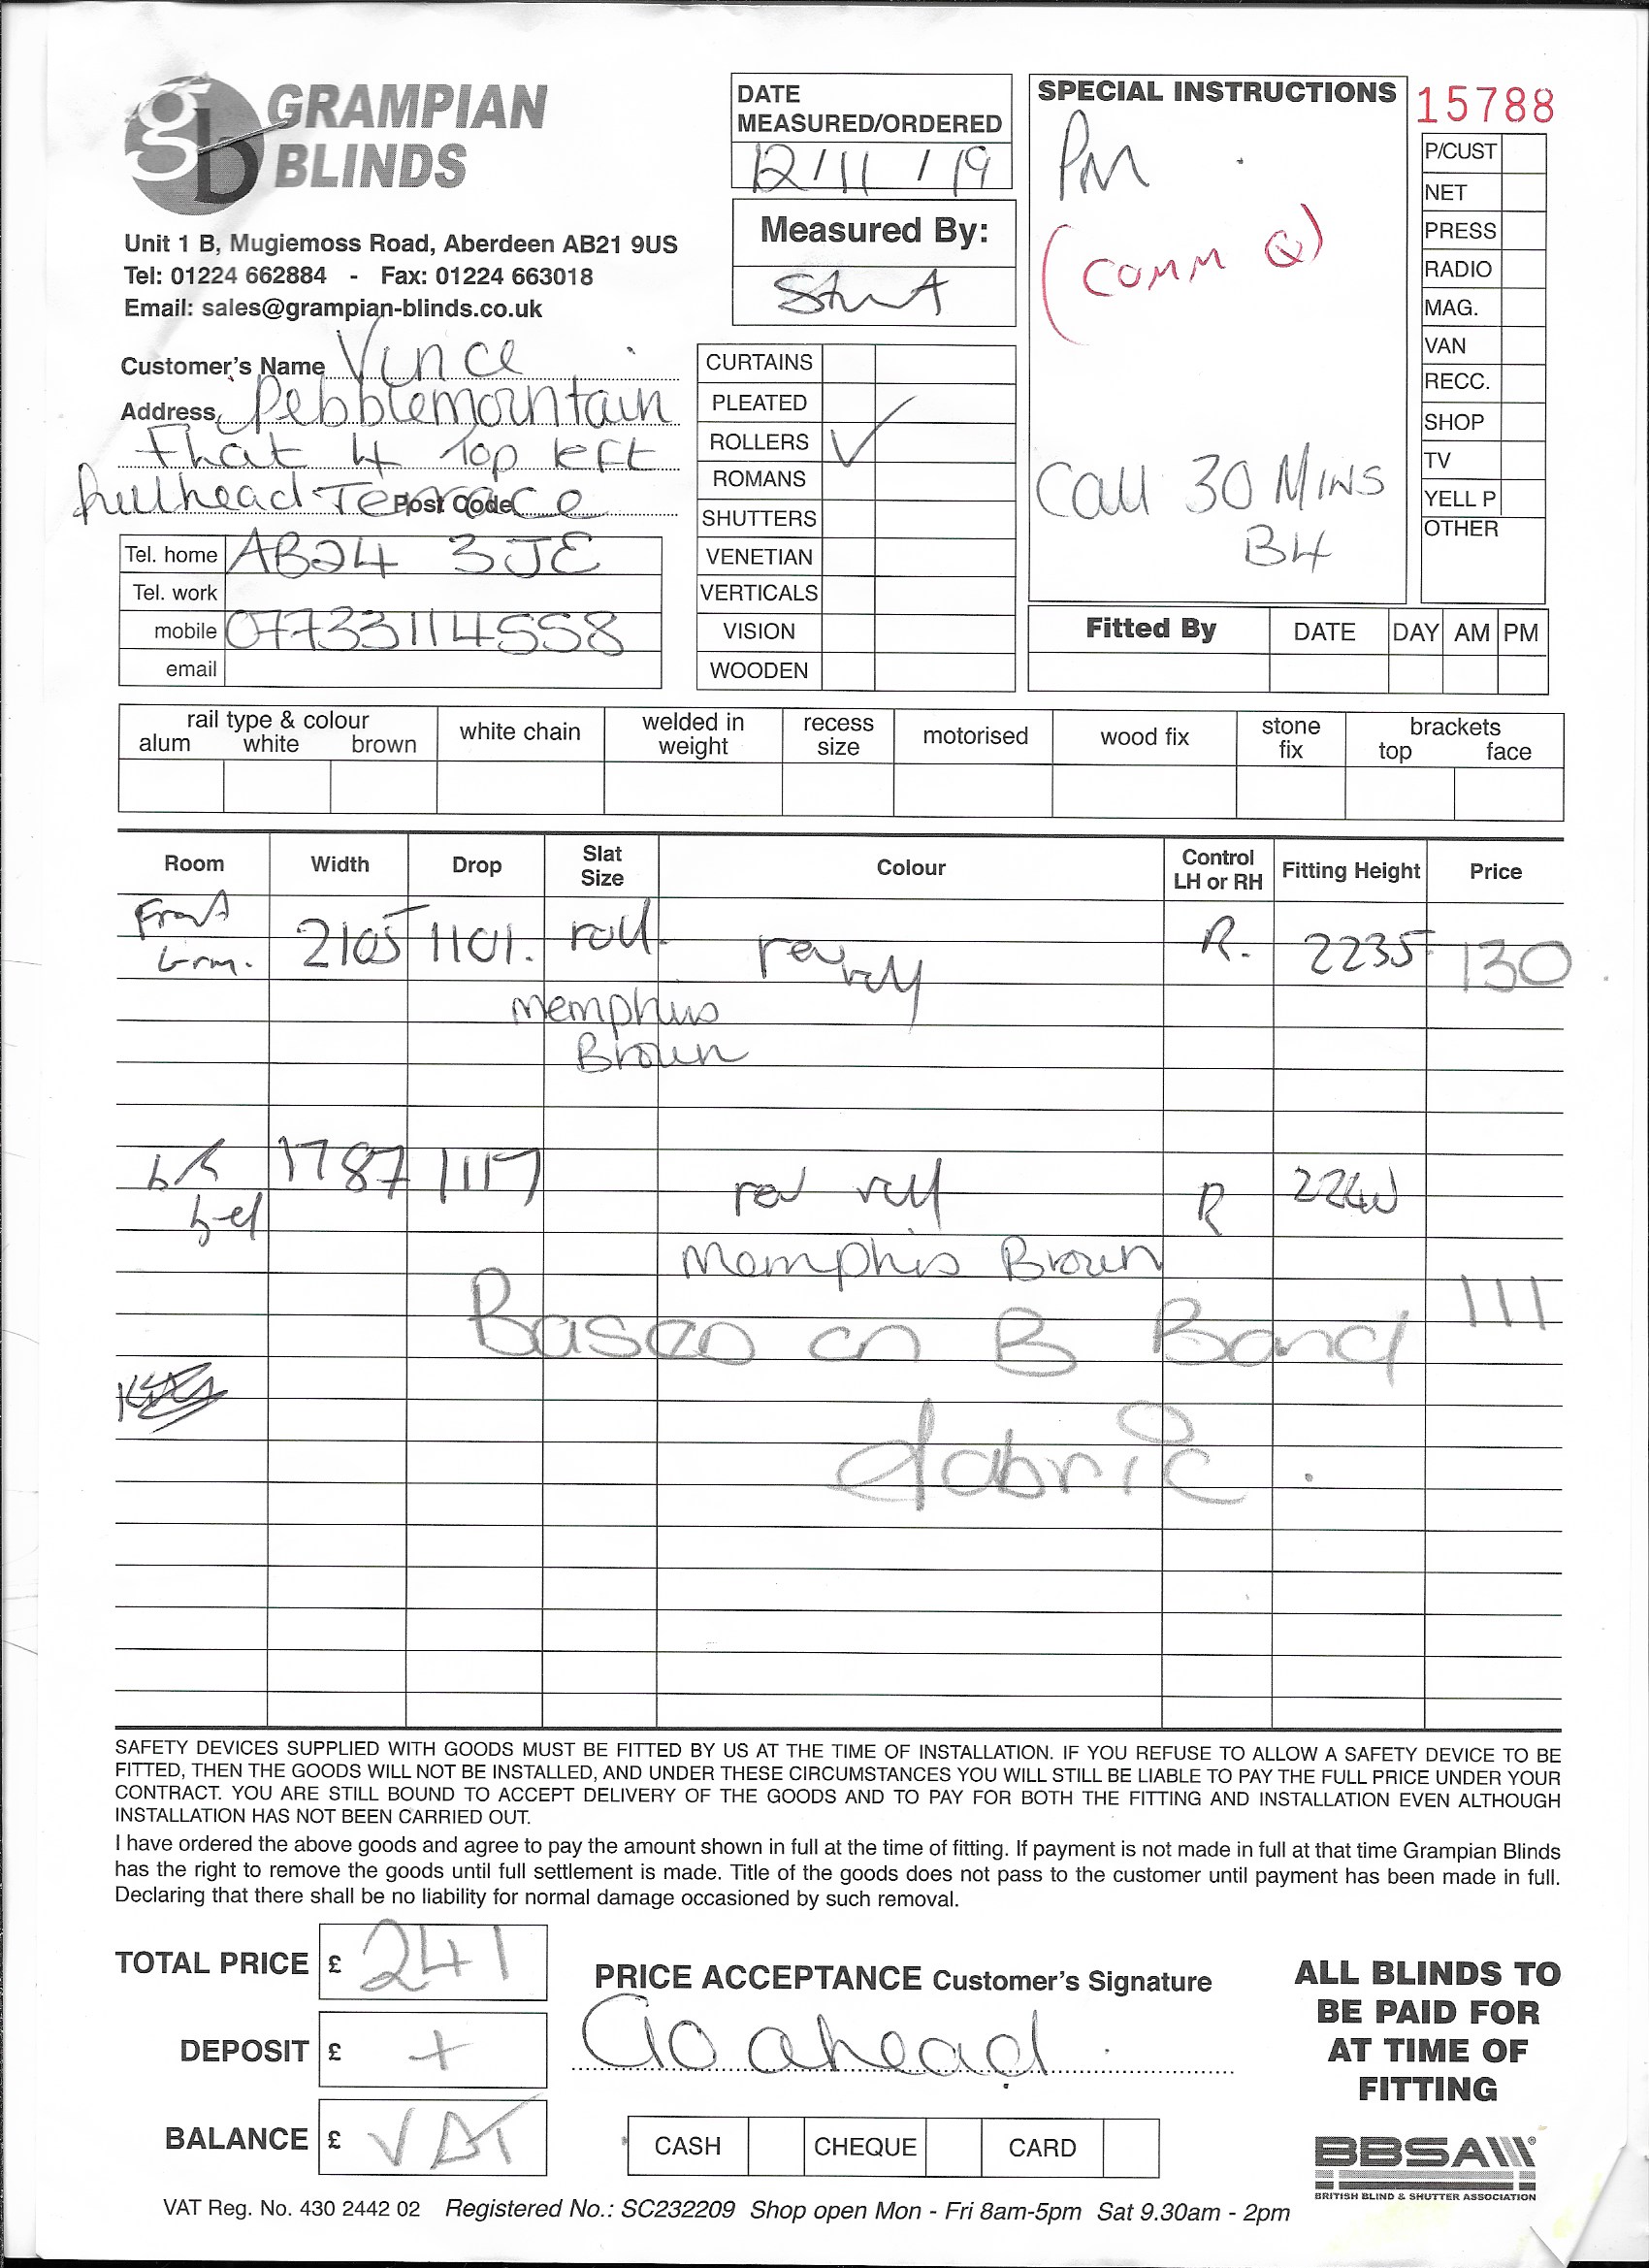 gb GRAMPIAN BLINDS
Unit 1 B, Mugiemoss Road, Aberdeen AB21 9US
Tel: 01224 662884 - Fax: 01224 663018
Email: sales@grampian-blinds.co.uk
Customer's Name Vince
Address Pebblemountain
Flat 4 Top Left
hillhead Terrace Post Code
Tel. home AB24 3JE
Tel. work
mobile 07733114558
email
DATE
MEASURED/ORDERED
12/11/19
Measured By:
CURTAINS
PLEATED
ROLLERS ✓
ROMANS
SHUTTERS
VENETIAN
VERTICALS
VISION
WOODEN
SPECIAL INSTRUCTIONS
PM
(Comm Q)
Call 30 MINS
B4
15788
P/CUST
NET
PRESS
RADIO
MAG.
VAN
RECC.
SHOP
TV
YELL P
OTHER
Fitted By DATE DAY AM PM
rail type & colour white chain welded in weight recess size motorised wood fix stone fix brackets
alum white brown top face
Room Width Drop Slat Size Colour Control LH or RH Fitting Height Price
Front 2105 1101. roll. rev roll R. 2235 130
Memphis
Brown
1787 1117 rev roll R 2240
Memphis Brown
111
Based on B Band
fabric.
SAFETY DEVICES SUPPLIED WITH GOODS MUST BE FITTED BY US AT THE TIME OF INSTALLATION. IF YOU REFUSE TO ALLOW A SAFETY DEVICE TO BE
FITTED, THEN THE GOODS WILL NOT BE INSTALLED, AND UNDER THESE CIRCUMSTANCES YOU WILL STILL BE LIABLE TO PAY THE FULL PRICE UNDER YOUR
CONTRACT. YOU ARE STILL BOUND TO ACCEPT DELIVERY OF THE GOODS AND TO PAY FOR BOTH THE FITTING AND INSTALLATION EVEN ALTHOUGH
INSTALLATION HAS NOT BEEN CARRIED OUT.
I have ordered the above goods and agree to pay the amount shown in full at the time of fitting. If payment is not made in full at that time Grampian Blinds
has the right to remove the goods until full settlement is made. Title of the goods does not pass to the customer until payment has been made in full.
Declaring that there shall be no liability for normal damage occasioned by such removal.
TOTAL PRICE £ 241
DEPOSIT £ +
BALANCE £ VAT
PRICE ACCEPTANCE Customer's Signature
Go ahead
CASH CHEQUE CARD
ALL BLINDS TO
BE PAID FOR
AT TIME OF
FITTING
BBSA
BRITISH BLIND & SHUTTER ASSOCIATION
VAT Reg. No. 430 2442 02 Registered No.: SC232209 Shop open Mon - Fri 8am-5pm Sat 9.30am - 2pm